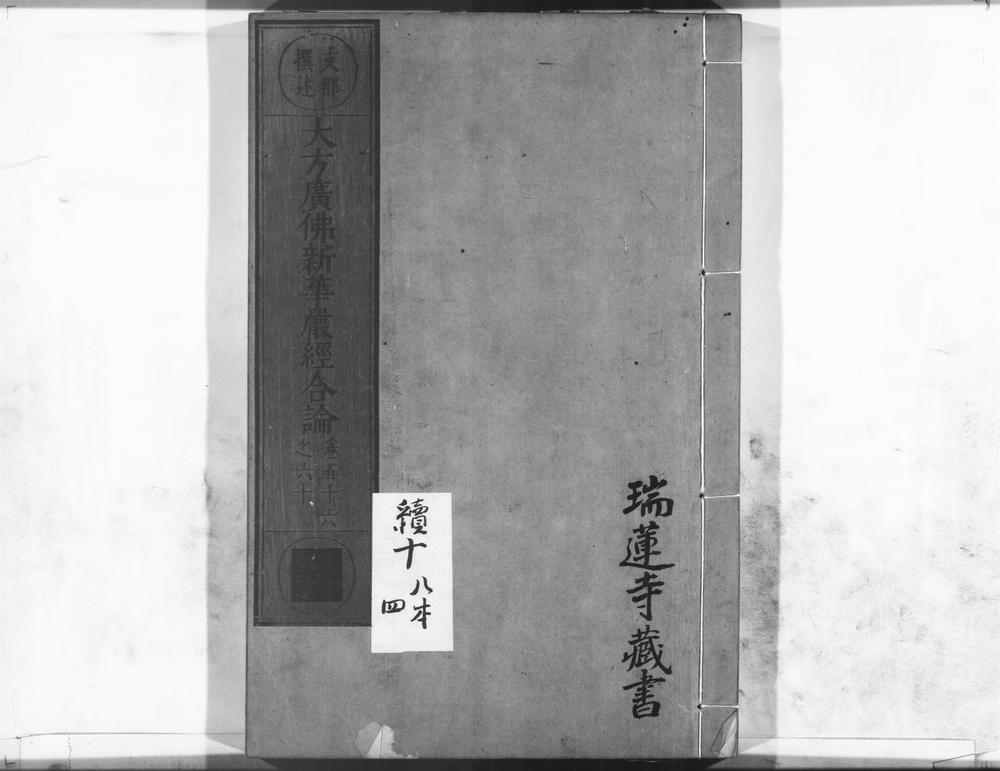 瑞蓮寺藏書
支那
撰述
大方廣佛新華嚴經合論
卷五十六
之六十
續十
八本
四